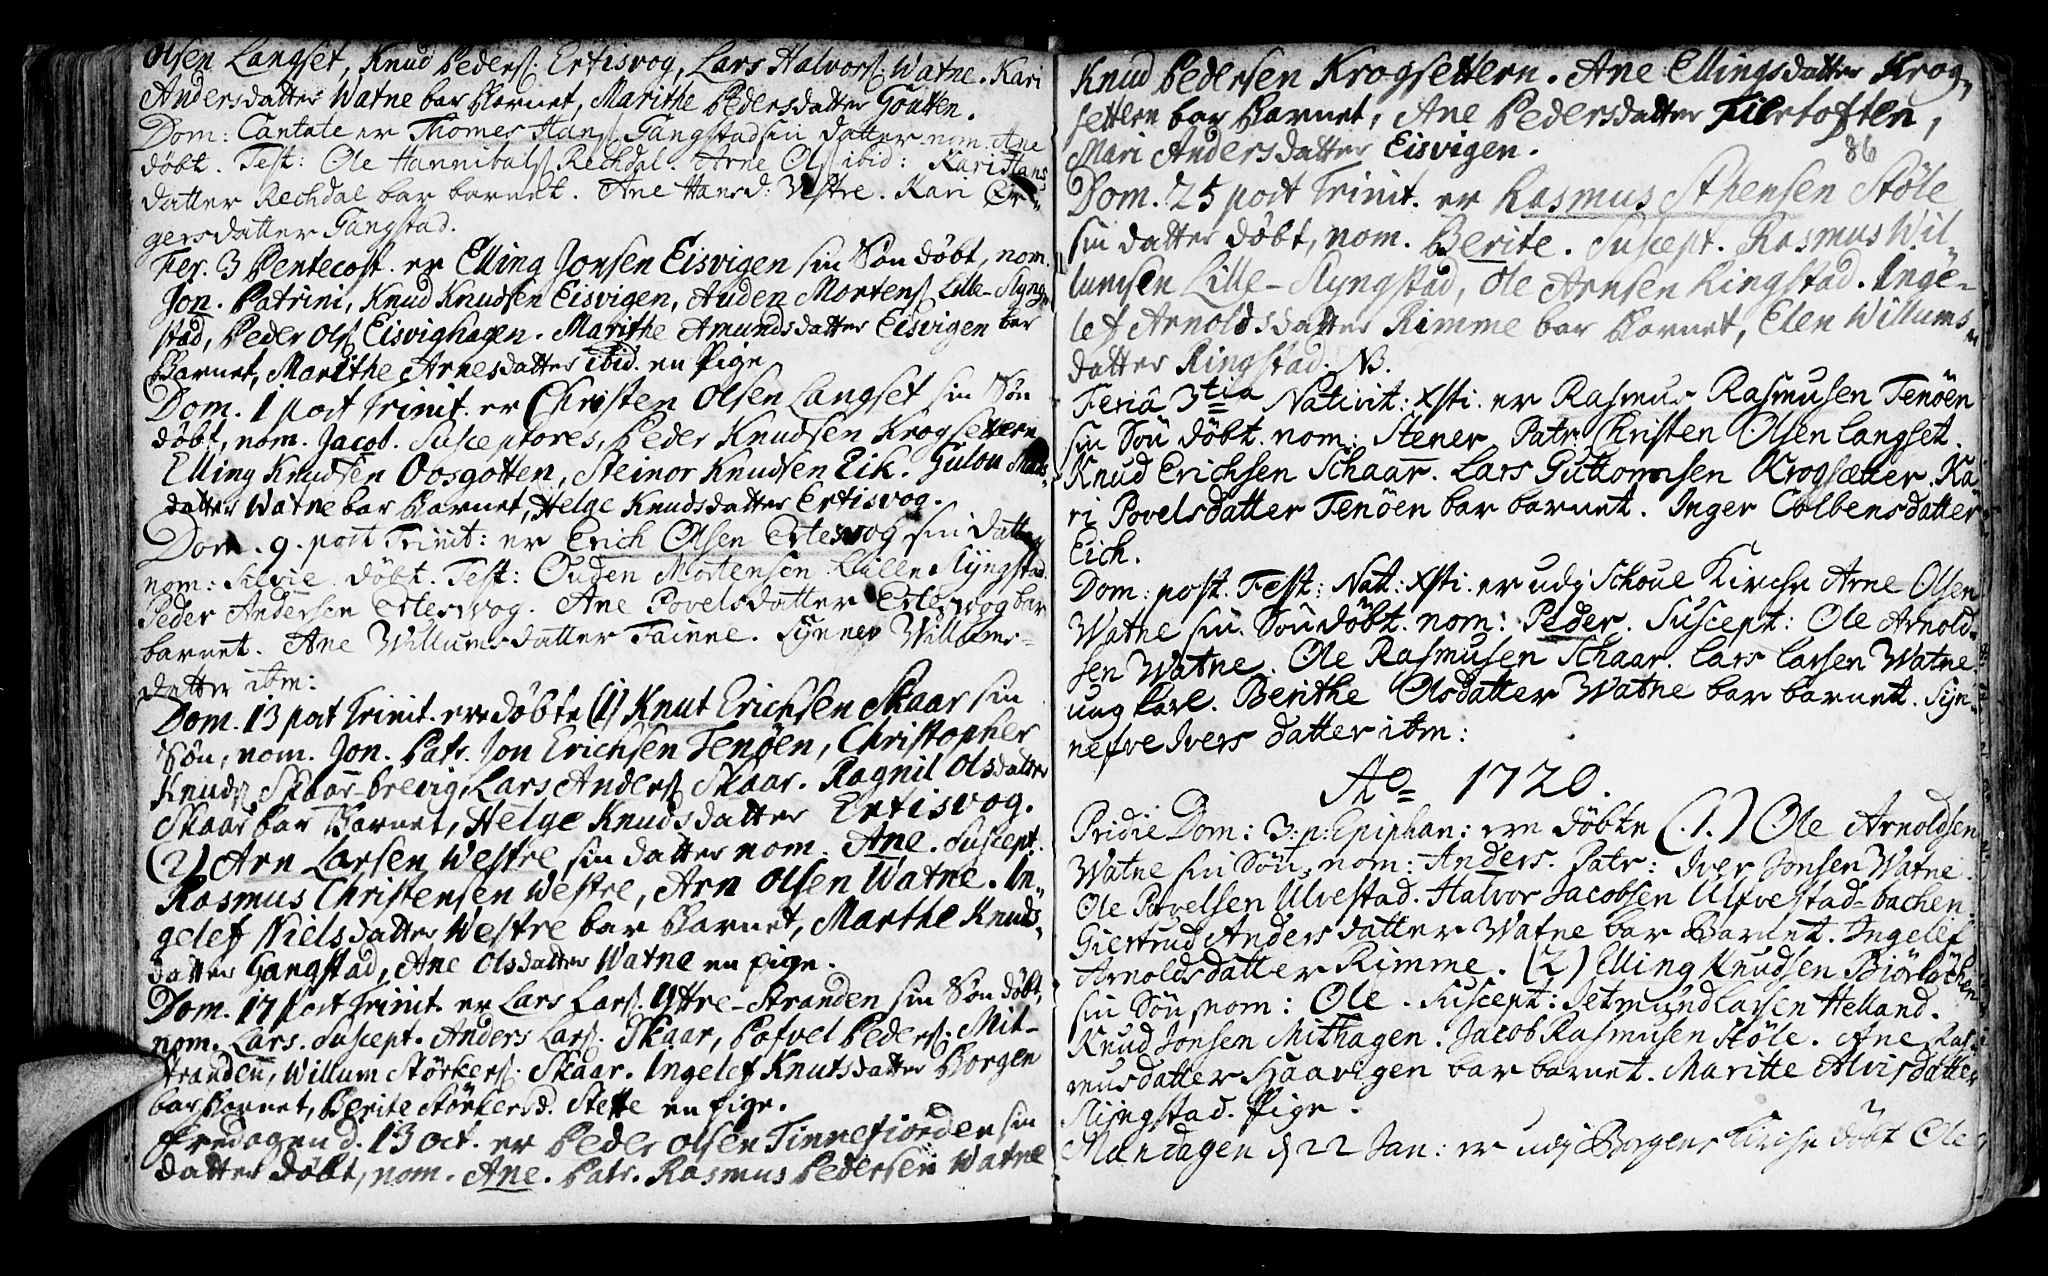 Olsen Langset, Knud Peders. Ertisvog, Lars Halvors. Watne. Kari
Andersdatter Watne bar Barnet, Marithe Pedersdatter Goutten.
Dom: Cantate er Thomes Hans. Gangstad sin datter nom. Ane
døbt. Test: Ole Hannibals. Rechdal. Arne Ols. ibid: Kari Hans
datter Rechdal bar barnet. Ane Hansd: Vestre. Kari
gersdatter Gangstad.
Fer. 3 Pentecost. er Elling Jonsen Eisvigen sin Søn døbt, nom.
Jon. Patrini, Knud Knudsen Eisvigen, Auden Mortens. Lille-Slyng-
stad, Peder Ols. Eisvighagen. Marithe Amundsdatter Eisvigen bar
Barnet, Marithe Arnesdatter ibid. en Pige
Dom. 1 post Trinit. er Christen Olsen Langset sin Søn
døbt, nom. Jacob. Susceptores, Peder Knudsen Krogsettern
Elling Knudsen Oosgotten, Steinor Knudsen Eik. Gulou Mads-
datter Watne bar Barnet, Helge Knudsdatter Ertisvog.
Dom. 9. post Trinit: er Erich Olsen Ertesvog sin datter
nom: Silvie døbt. Test: Ouden Mortensen Lille Slyngstad.
Peder Andersen Ertesvog. Ane Povelsdatter Ertesvog bar
barnet. Ane Willumsdatter Tainne. Synnev Willums-
datter ibm:
Dom. 13 post Trinit. ere døbte (1) Knut Erichsen Skaar sin
Søn, nom. Jon. Patr. Jon Erichsen Tenøen, Christopher
Knuds. Skaar-brevig, Lars Anders. Skaar. Ragnil Olsdatter
Skaar bar Barnet, Helge Knudsdatter Ertisvog.
(2) Arn Larsen Westre sin datter nom. Ane. Suscept.
Rasmus Christensen Westre, Arn Olsen Watne. In-
gelef Nielsdatter Westre bar Barnet, Marthe Knuds-
datter Gangstad, Ane Olsdatter Watne en pige.
Dom. 17 Post Trinit. er Lars Lars. Yttre-Stranden sin Søn døbt,
nom. Lars. Suscept. Anders Lars. Skaar, Pofvel Peders. Mit-
stranden, Willum Størkers. Skaar. Ingelef Knutsdatter Borgen
bar Barnet, Berite Størkersd. Stette en pige.
Fredagen d. 13 Oct. er Peder Olsen Tinnefiorden sin
datter døbt, nom. Ane. Patr. Rasmus Pedersen Watne
Knud Pedersen Krogsettern. Ane Ellingsdatter Krog-
settern bar Barnet, Ane Pedersdatter Fiertoften,
Mari Andersdatter Eisvigen.
86
Dom. 25 post Trinit. er Rasmus Sthensen Støle
sin datter døbt, nom. Berite. Suscept. Rasmus Wil-
lumsen Lille-Slyngstad, Ole Arnsen Ringstad. Inge-
lef Arnoldsdatter Rimme bar Barnet, Elen Willums-
datter Ringstad. NB.
Feria 3tia Nativit: Xsti. er Rasmus Rasmusen Tenöen
sin Søn døbt. nom: Stener. Patr: Christen Olsen Langset.
Knud Erichsen Schaar. Lars Guttomsen Krogsætter. Ka-
ri Povelsdatter Tenöen bar barnet. Inger Colbensdatter
Eich.
Dom: post. Fest: Nat: Xsti. er udj Schoue Kirche Arne Olsen
Watne sin Søn døbt. nom: Peder. Suscept: Ole Arnold-
sen Watne. Ole Rasmusen Schaar. Lars Larsen Watne
ung karl. Berithe Olsdatter Watne bar barnet. Syn-
nefve Ivers datter ibm:
Ao 1720.
Pridie Dom: 3. p: Epiphan: ere døbte (1.) Ole Arnoldsen
Watne sin Søn, nom: Anders. Patr: Iver Jonsen Watne.
Ole Povelsen Ulvestad. Halvor Jacobsen Ulfvestad-bachen.
Giertrud Anders datter Watne bar Barnet. Ingelef
Arnoldsdatter Rimme. (2) Elling Knudsen
sin Søn, nom: Ole. Suscept: Setmund Larsen Helland.
Knud Jonsen Mithagen. Jacob Rasmusen Støle. Ane Ras-
musdatter Haavigen bar barnet. Maritte Alvisdatter
Slyngstad. Pige.
Mandagen d 22 Jan: er udj Borgens Kirche døbt Ole